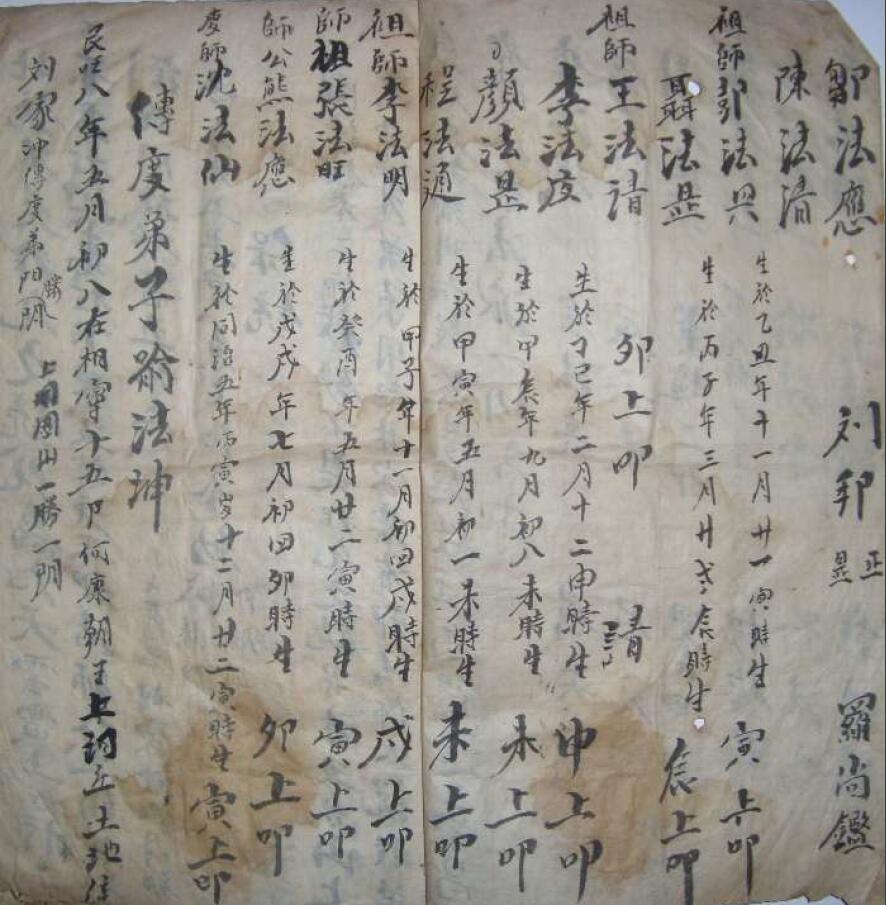 鄒法應 刘邦 正 昰 羅尚鑑
陳法清
祖師彭法興 生於乙丑年十一月廿一寅時生 寅上卯
聶法昰 生於丙子年三月廿 辰時生 辰上卯
祖師王法請 卯上卯 請
李法度 生於丁巳年二月十二申時生 申上卯
顏法昰 生於甲辰年九月初八未時生 未上卯
程法通 生於甲寅年五月初一未時生 未上卯
祖師李法明 生於甲子年十一月初四戍時生 戍上卯
師祖張法旺 生於癸酉年五月廿二寅時生 寅上卯
師公熊法應 生於戊戌年七月初四卯時生 卯上卯
度師沈法仙 生於同治五年丙寅岁十二月廿二寅時生 寅上卯
傳度弟子喻法坤
民国八年五月初八在湘寧十五 何 朝王上 土地
刘家冲傳度弟 一勝一門